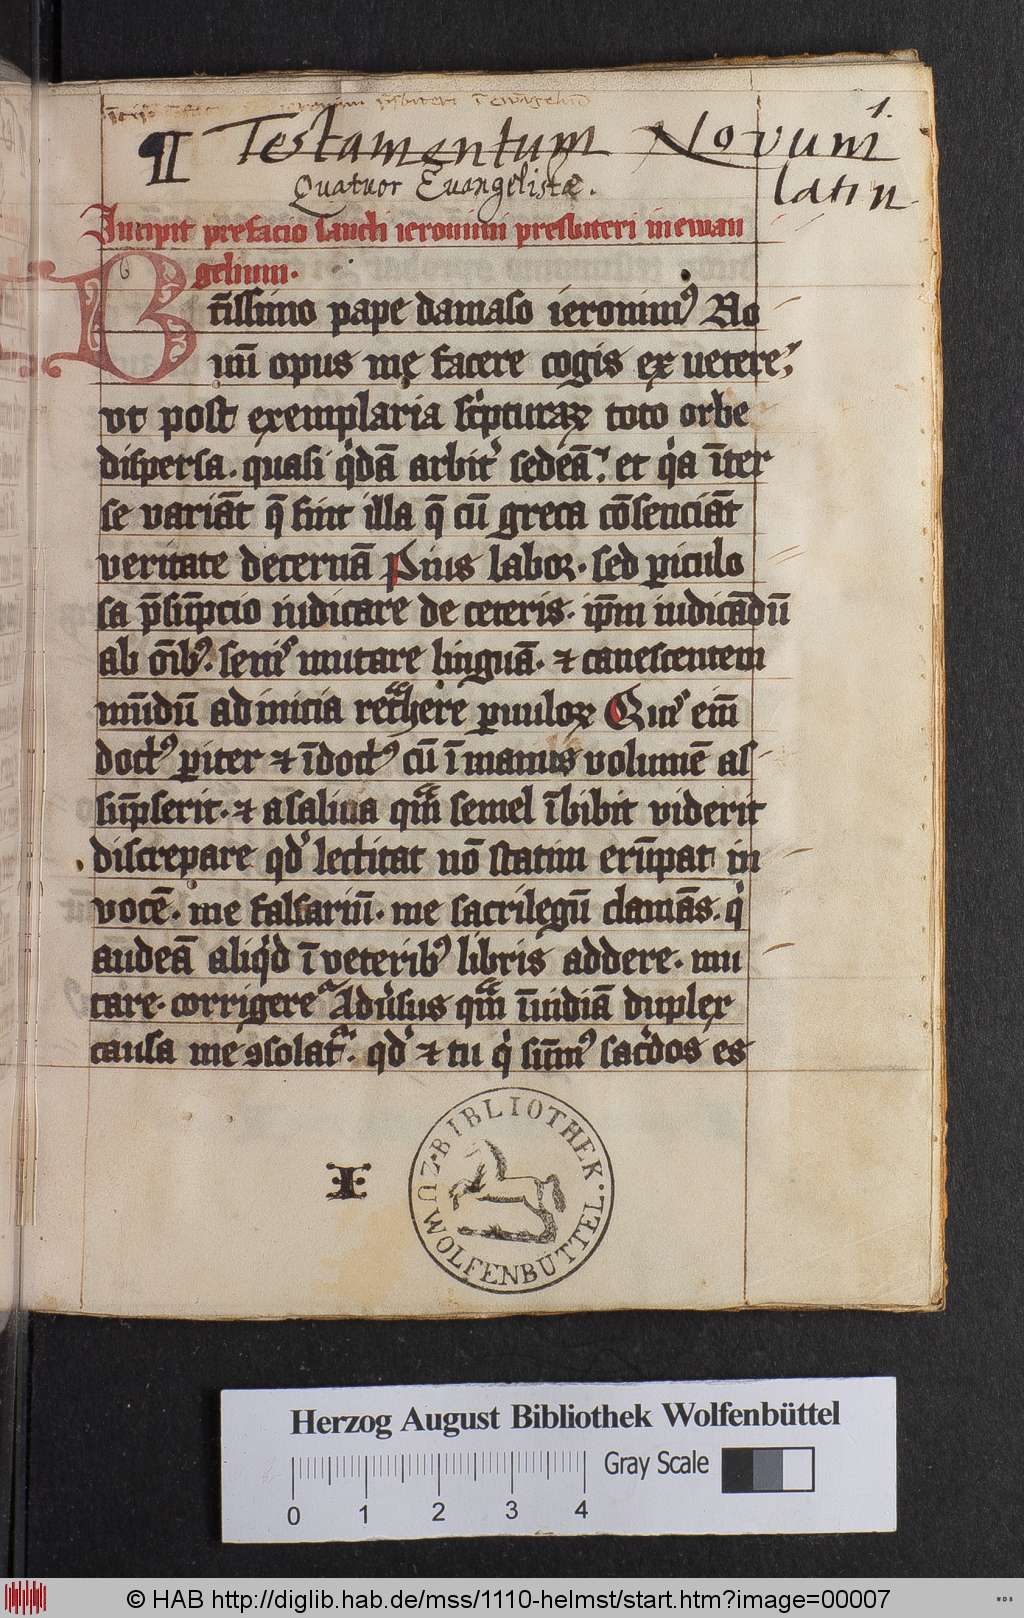 1.
II Testamentum Novum
latin.
Quatuor Euangelistæ.
Incipit prefacio sancti ieronimi presbiteri in ewan
gelium.
B
tīssimo pape damaso ieronimꝰ No
uū opus me facere cogis ex uetere,
ut post exemplaria scͥpturaꝝ toto orbe
dispersa. quasi qͥdā arbitʼ sedeā, et qͥa īter
se variāt q̄ sint illa q̄ cū greca cōsenciāt
veritate decernā Pius labor. sed ꝑiculo
sa p̄sūpcio iudicare de ceteris. ip̄m iudicādū
ab oībꝰ. senisʼ mutare linguā. ⁊ canescentem
mūdū ad inicia ret͛here ꝑuuloꝝ Quisʼ eiī
doctꝰ ꝑiter ⁊ īdoctꝰ cū ī manus volumē as
sūpserit. ⁊ a saliua qᷓm semel ībibit viderit
discrepare qdʼ lectitat nō statim erūpat in
vocē. me falsariū. me sacrilegū clamās. qͥ
audeā aliqͥd ī veteribꝰ libris addere. mu
tare. corrigere Aduʼsus qᷓm īuidiā duplex
causa me ꝯsolatᷣ. qdʼ ⁊ tu qͥ sūmꝰ sacʼdos es
I
BIBLIOTHEK · ZU WOLFENBÜTTEL ·
Herzog August Bibliothek Wolfenbüttel
Gray Scale
0 1 2 3 4
© HAB http://diglib.hab.de/mss/1110-helmst/start.htm?image=00007